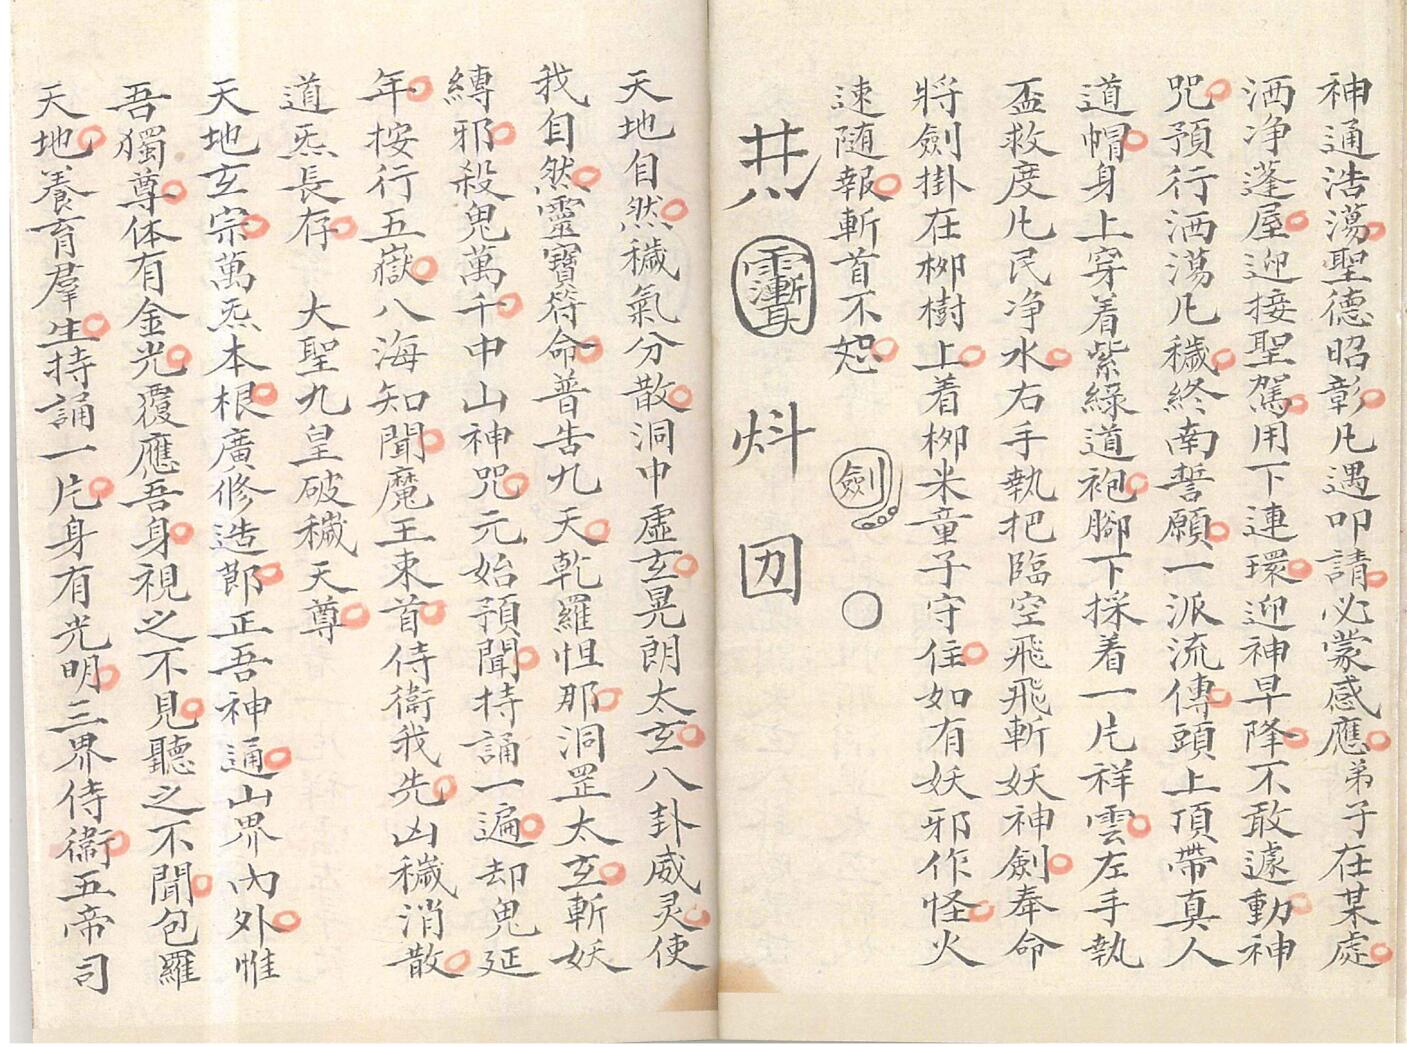 神通浩蕩聖德昭彰凡遇叩請必蒙感應弟子在某處
洒净蓬屋迎接聖駕用下連環迎神早降不敢遽動神
咒預行洒蕩凡穢終南誓願一派流傳頭上頂帶真人
道帽身上穿着紫綠道袍腳下採着一片祥雲左手執
盃救度凡民净水右手執把臨空飛飛斬妖神劍奉命
將劍掛在柳樹上着柳米童子守住如有妖邪作怪火
速隨報斬首不恕 劍
天地自然穢氣分散洞中虛玄晃朗太玄八卦威灵使
我自然靈寶符命普告九天乾羅怛那洞罡太玄斬妖
縛邪殺鬼萬千中山神咒元始預聞持誦一遍却鬼延
年按行五嶽八海知聞魔王束首侍衛我先凶穢消散
道炁長存 大聖九皇破穢天尊
天地玄宗萬炁本根廣修造節正吾神通山界內外惟
吾獨尊体有金光覆應吾身視之不見聽之不聞包羅
天地養育羣生持誦一片身有光明三界侍衛五帝司